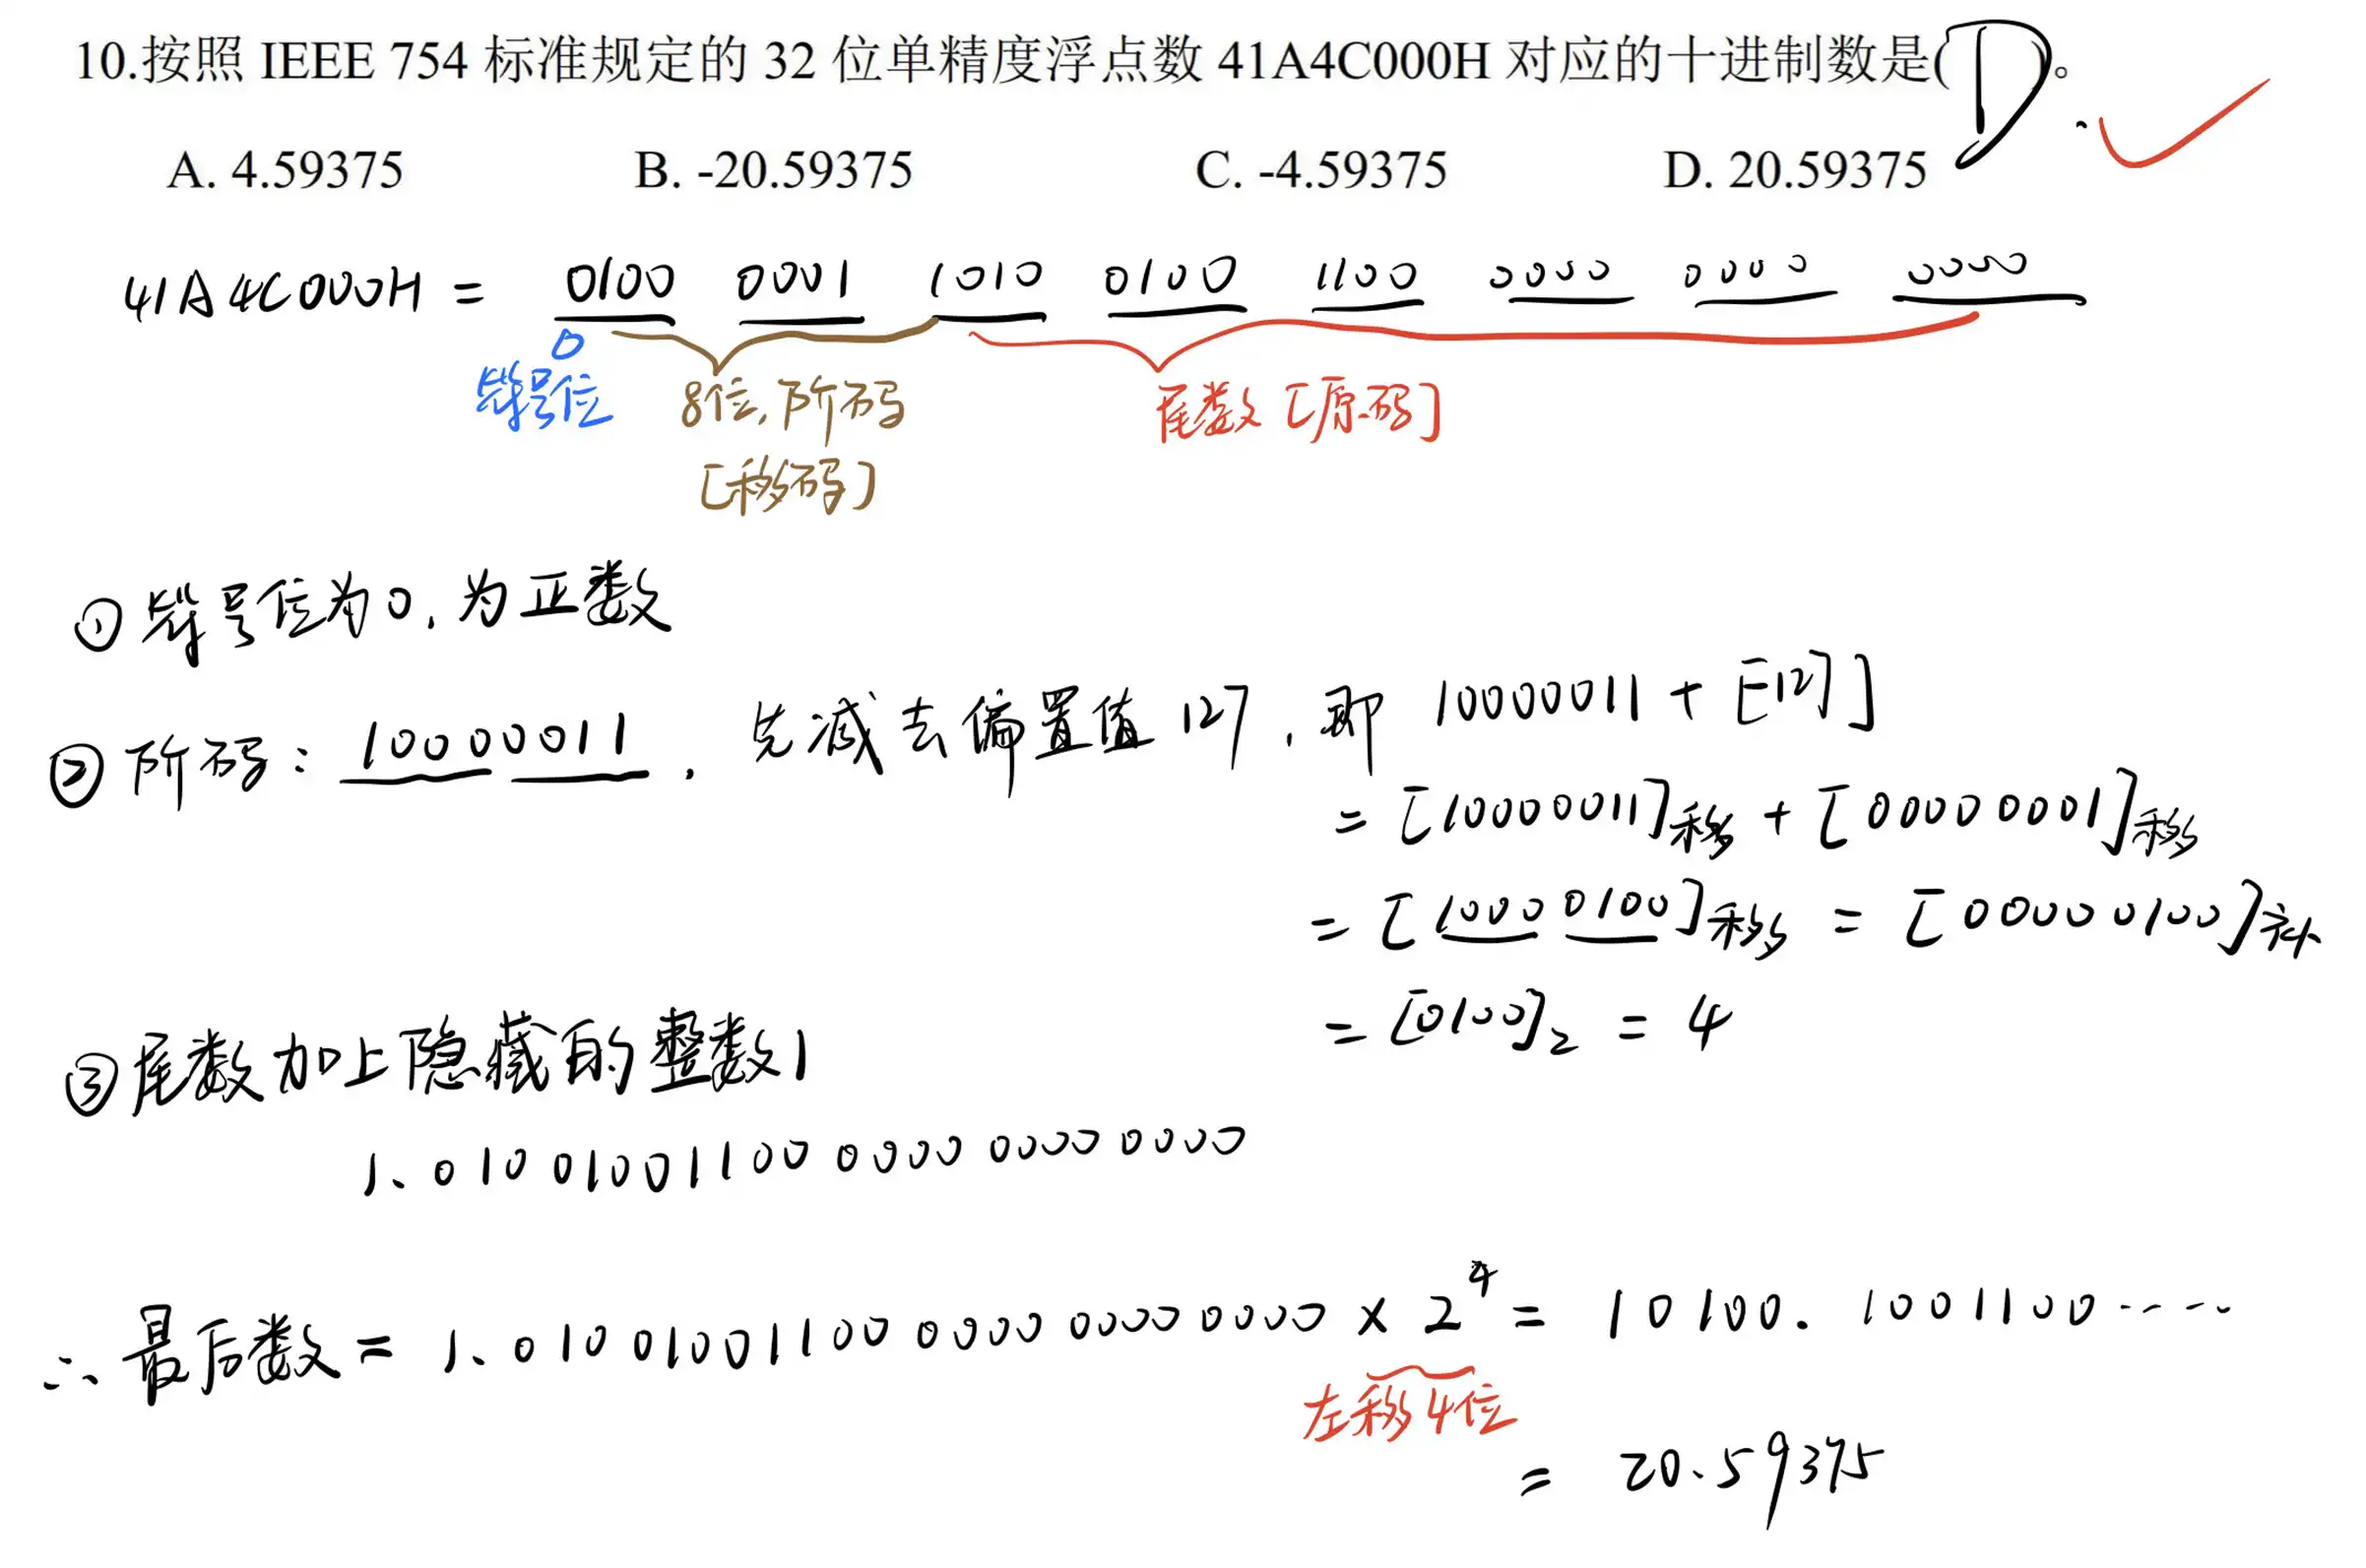 10.按照 IEEE 754 标准规定的 32 位单精度浮点数 41A4C000H 对应的十进制数是( D )。
A. 4.59375 B. -20.59375 C. -4.59375 D. 20.59375
41A4C000H = 0100 0001 1010 0100 1100 0000 0000 0000
0
符号位 8位,阶码 尾数[原码]
[移码]
①符号位为0,为正数
②阶码: 10000011, 先减去偏置值127, 即 10000011 + [-127]
= [10000011]移 + [00000001]移
= [10000100]移 = [00000100]补
= [0100]2 = 4
③尾数加上隐藏的整数1
1.01001001100 0000 0000 0000
∴最后数 = 1.01001001100 0000 0000 0000 × 2^4 = 10100.1001100....
左移4位
= 20.59375